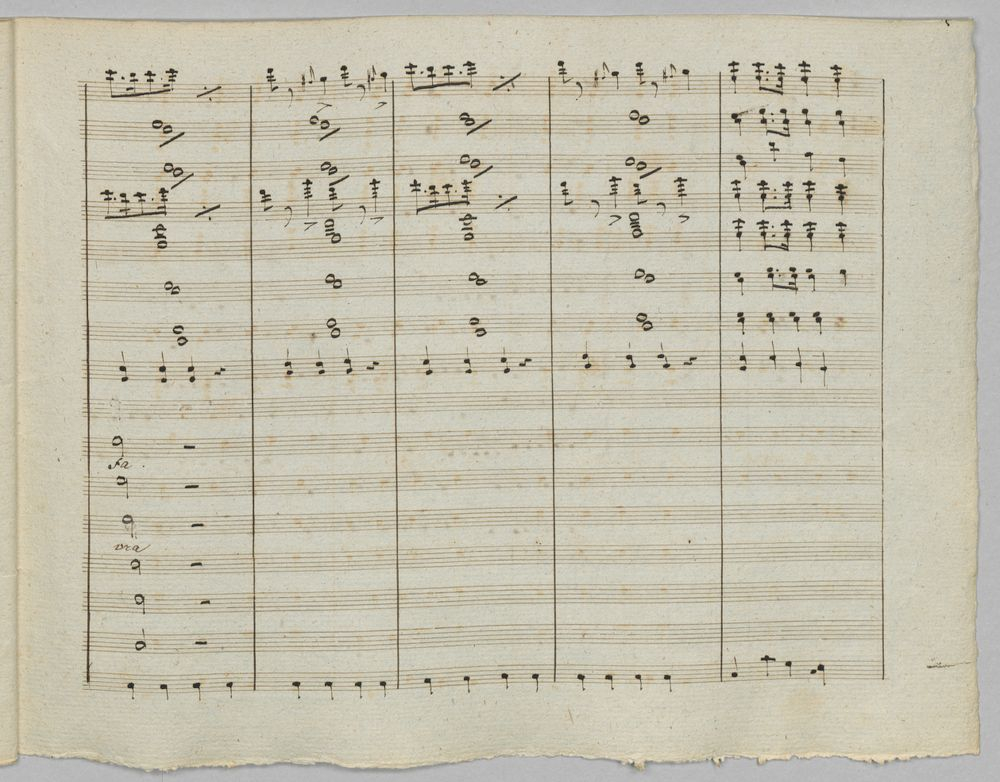 fa
ora